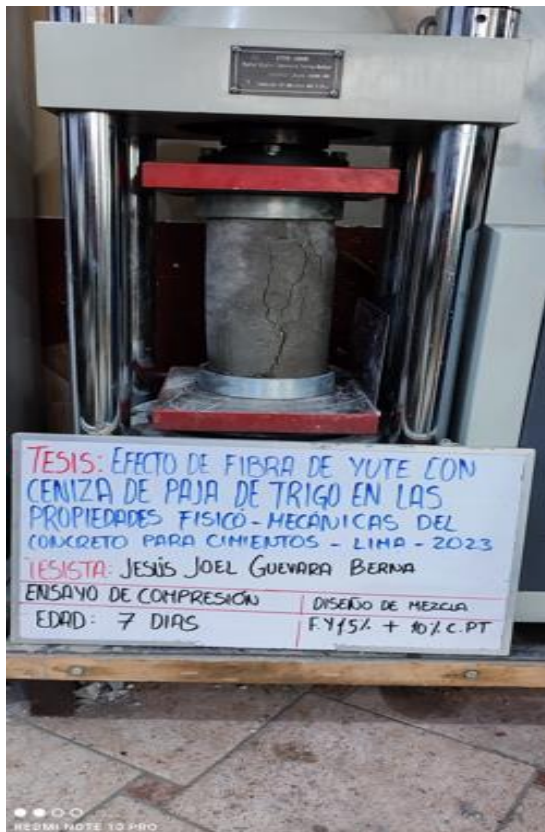 TESIS: EFECTO DE FIBRA DE YUTE CON
CENIZA DE PAJA DE TRIGO EN LAS
PROPIEDADES FISICO-MECÁNICAS DEL
CONCRETO PARA CIMIENTOS - LIMA - 2023
TESISTA: JESÚS JOEL GUEVARA BERNA
ENSAYO DE COMPRESIÓN
DISEÑO DE MEZCLA
EDAD: 7 DIAS
F.Y 1.5% + 10% C.PT
REDMI NOTE 10 PRO